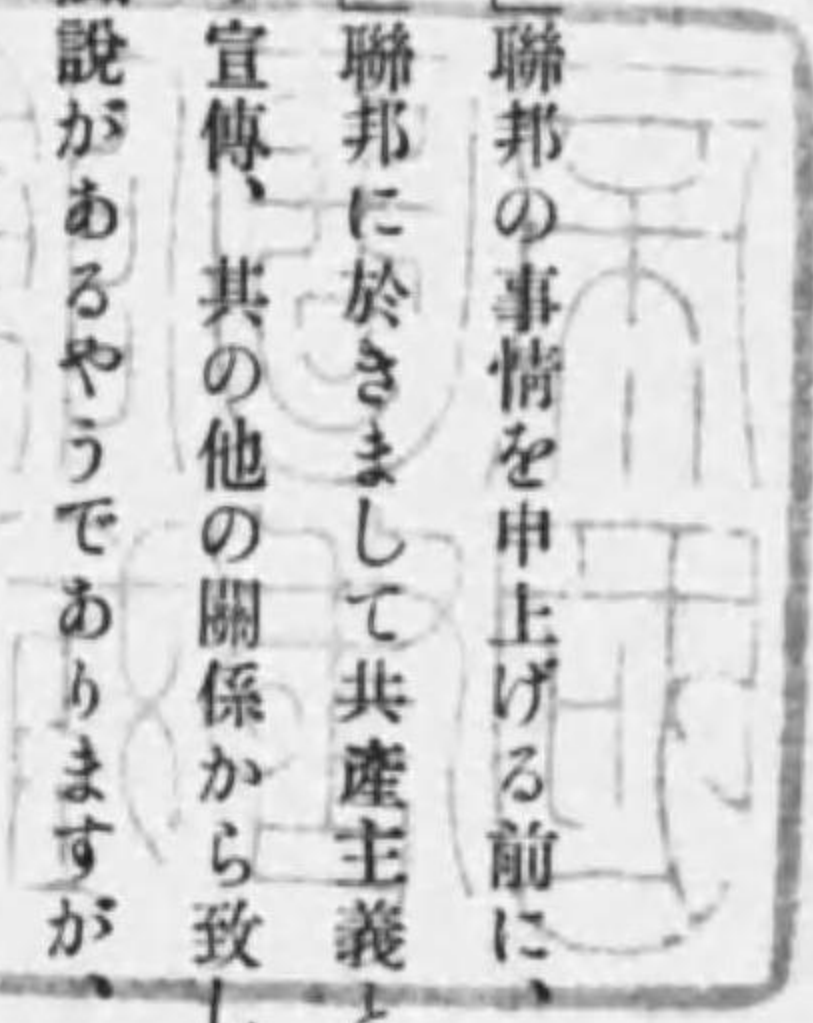 聯邦の事情を申上げる前に、
聯邦に於きまして共産主義と
宣傳、其の他の關係から致し
說があるやうでありますが、